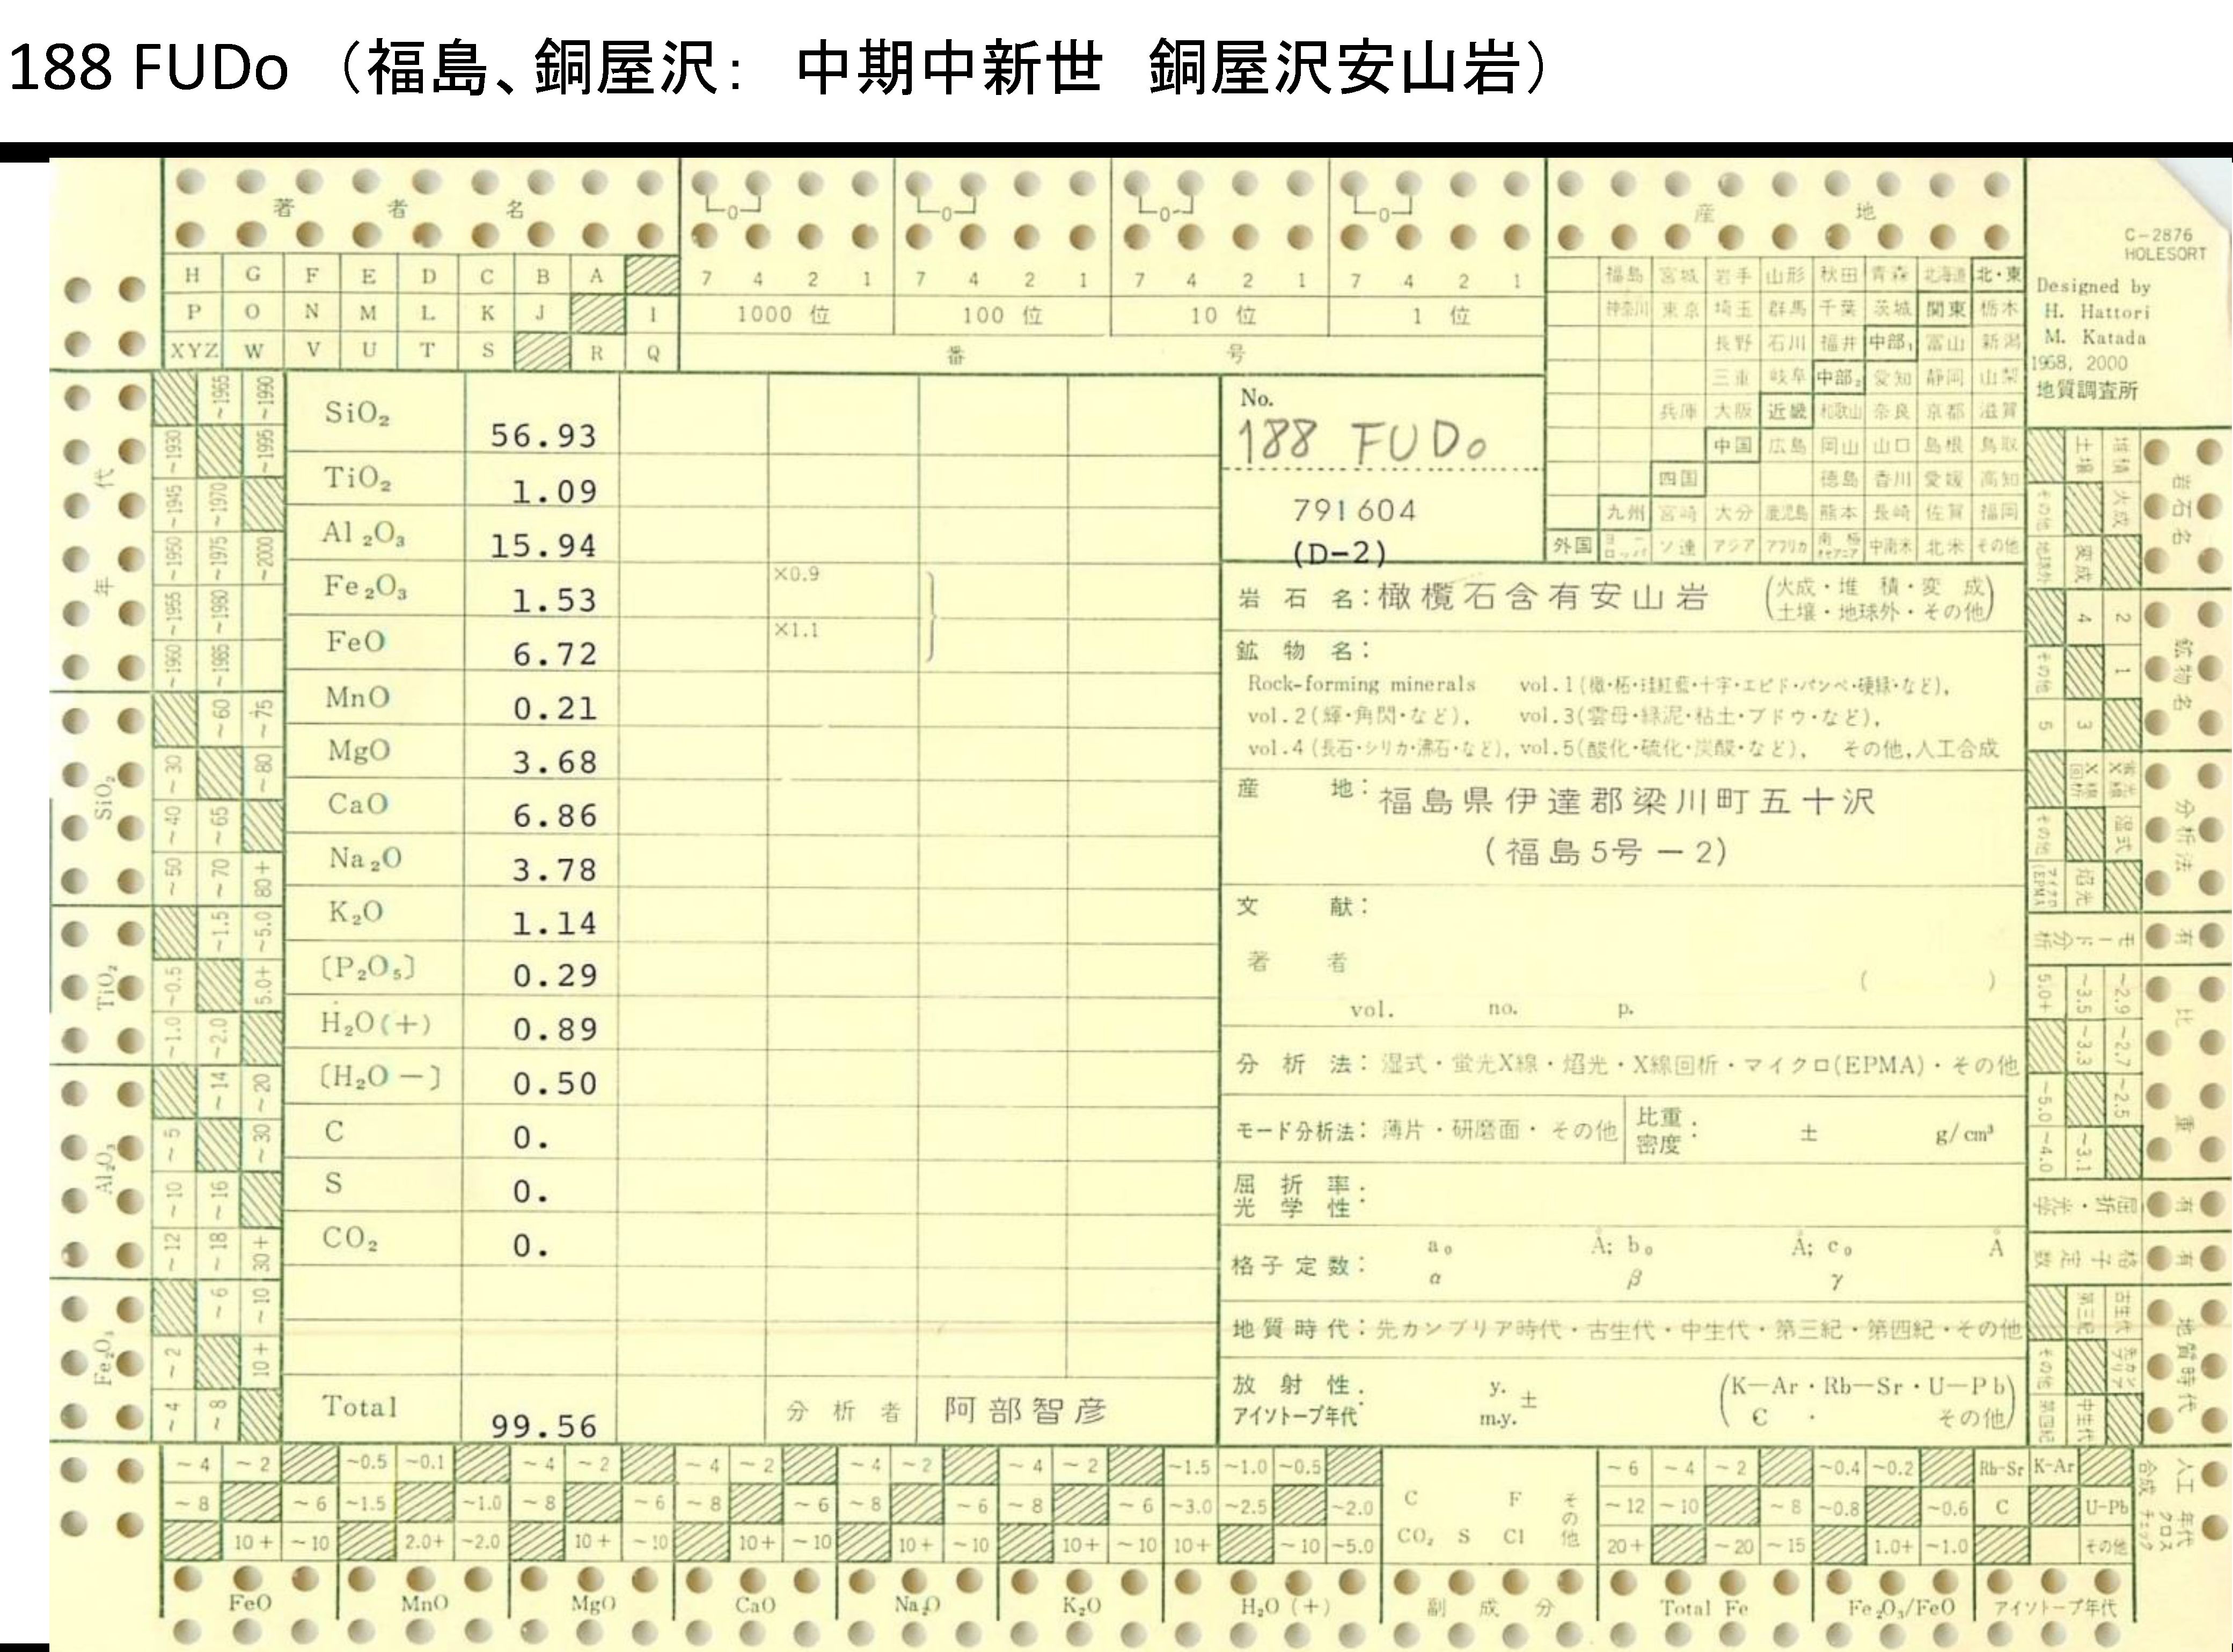 188 FUDo （福島、銅屋沢： 中期中新世 銅屋沢安山岩）
著 者 名
H G F E D C B A
P O N M L K J I
XYZ W V U T S R Q
7 4 2 1 7 4 2 1 7 4 2 1 7 4 2 1
1000 位 100 位 10 位 1 位
番 号
産 地
福島 宮城 岩手 山形 秋田 青森 北海道 北・東
神奈川 東京 埼玉 群馬 千葉 茨城 関東 栃木
長野 石川 福井 中部₁ 富山 新潟
三重 岐阜 中部₂ 愛知 静岡 山梨
兵庫 大阪 近畿 和歌山 奈良 京都 滋賀
中国 広島 岡山 山口 島根 鳥取
四国 徳島 香川 愛媛 高知
九州 宮崎 大分 鹿児島 熊本 長崎 佐賀 福岡
外国 ヨーロッパ ソ連 アジア アフリカ 南極オセアニア 中南米 北米 その他
C-2876
HOLESORT
Designed by
H. Hattori
M. Katada
1968, 2000
地質調査所
年 代
~1955 ~1990
~1930 ~1995
~1945 ~1970
~1950 ~1975 ~2000
~1955 ~1980
~1960 ~1985
SiO₂
~60 ~75
~30 ~80
~40 ~65
~50 ~70 80+
TiO₂
~1.5 ~5.0
~0.5 5.0+
~1.0 ~2.0
Al₂O₃
~14 ~20
~5 ~30
~10 ~16
~12 ~18 30+
Fe₂O₃
~6 ~10
~2 10+
~4 ~8
SiO₂ 56.93
TiO₂ 1.09
Al₂O₃ 15.94
Fe₂O₃ 1.53 ×0.9
FeO 6.72 ×1.1
MnO 0.21
MgO 3.68
CaO 6.86
Na₂O 3.78
K₂O 1.14
〔P₂O₅〕 0.29
H₂O(+) 0.89
〔H₂O－〕 0.50
C 0.
S 0.
CO₂ 0.
Total 99.56 分 析 者 阿部智彦
No.
188 FUDo
791604
(D-2)
岩 石 名：橄欖石含有安山岩 （火成・堆 積・変 成
土壌・地球外・その他）
鉱 物 名：
Rock-forming minerals vol.1(橄・柘・珪紅藍・十字・エピド・パンペ・硬緑・など),
vol.2(輝・角閃・など), vol.3(雲母・緑泥・粘土・ブドウ・など),
vol.4 (長石・シリカ・沸石・など), vol.5(酸化・硫化・炭酸・など), その他,人工合成
産 地：福島県伊達郡梁川町五十沢
(福島5号－2)
文 献：
著 者
( )
vol. no. p.
分 析 法：湿式・蛍光X線・焰光・X線回析・マイクロ(EPMA)・その他
モード分析法：薄片・研磨面・その他 比重 密度： ± g/cm³
屈 折 率：
光 学 性：
格子定数： a₀ Å; b₀ Å; c₀ Å
α β γ
地質時代：先カンブリア時代・古生代・中生代・第三紀・第四紀・その他
放 射 性・ y. ± (K－Ar・Rb－Sr・U－Pb
アイソトープ年代 m.y. C ・ その他)
岩石名
堆積 土壌
火成 その他
変成 地球外
鉱物名
2 4
1 その他
3 5
分析法
蛍光X線 X線回析
湿式 その他
焰光 マイクロ(EPMA)
有 モード分析
比 重
~2.9 ~3.5 5.0+
~2.7 ~3.3
~2.5 ~5.0
~3.1 ~4.0
有 屈折・光学
有 格子定数
地質時代
古生代 第三紀
先カンブリア その他
中生代 第四紀
~4 ~2 ~0.5 ~0.1 ~4 ~2 ~4 ~2 ~4 ~2 ~4 ~2 ~1.5 ~1.0 ~0.5 ~6 ~4 ~2 ~0.4 ~0.2 Rb-Sr K-Ar
~8 ~6 ~1.5 ~1.0 ~8 ~6 ~8 ~6 ~8 ~6 ~8 ~6 ~3.0 ~2.5 ~2.0 C F その他 ~12 ~10 ~8 ~0.8 ~0.6 C U-Pb
10+ ~10 2.0+ ~2.0 10+ ~10 10+ ~10 10+ ~10 10+ ~10 10+ ~10 ~5.0 CO₂ S Cl 20+ ~20 ~15 1.0+ ~1.0 その他
人工合成 年代クロスチェック
FeO MnO MgO CaO Na₂O K₂O H₂O (+) 副 成 分 Total Fe Fe₂O₃/FeO アイソトープ年代